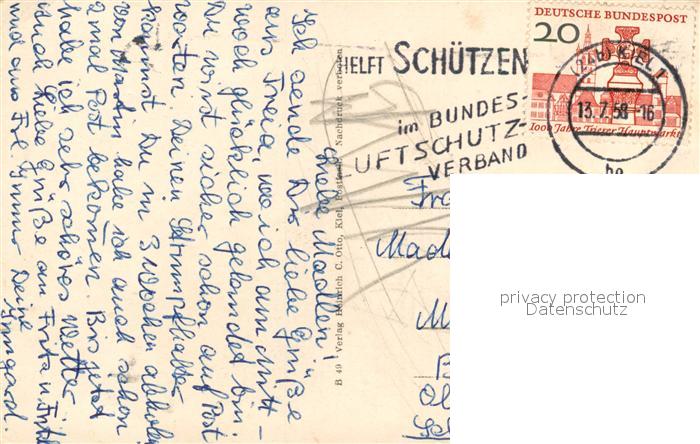 Liebe Madlen!
Ich sende Dir liebe Grüße
aus Freia, wo ich am Mitt-
woch glücklich gelandet bin.
Du wirst sicher schon auf Post
warten. Deinen Strumpfhalter
kannst Du in 3 Wochen abholen.
von Martin habe ich auch schon
2 mal Post bekommen. Bis jetzt
habe ich sehr schönes Wetter
Auch liebe Grüße an Fritz u.
und aus Immer Deine
Irmgard.
B 49 Verlag Heinrich C. Otto, Kiel, Postfach Nachdruck verboten
HELFT SCHÜTZEN
im BUNDES-
LUFTSCHUTZ-
VERBAND
DEUTSCHE BUNDESPOST
20
1000 Jahre Trierer Hauptmarkt
(24b) KIEL 1
13.7.58-16
bo
Fra
Madle
M
B
Ol
Sch
privacy protection
Datenschutz